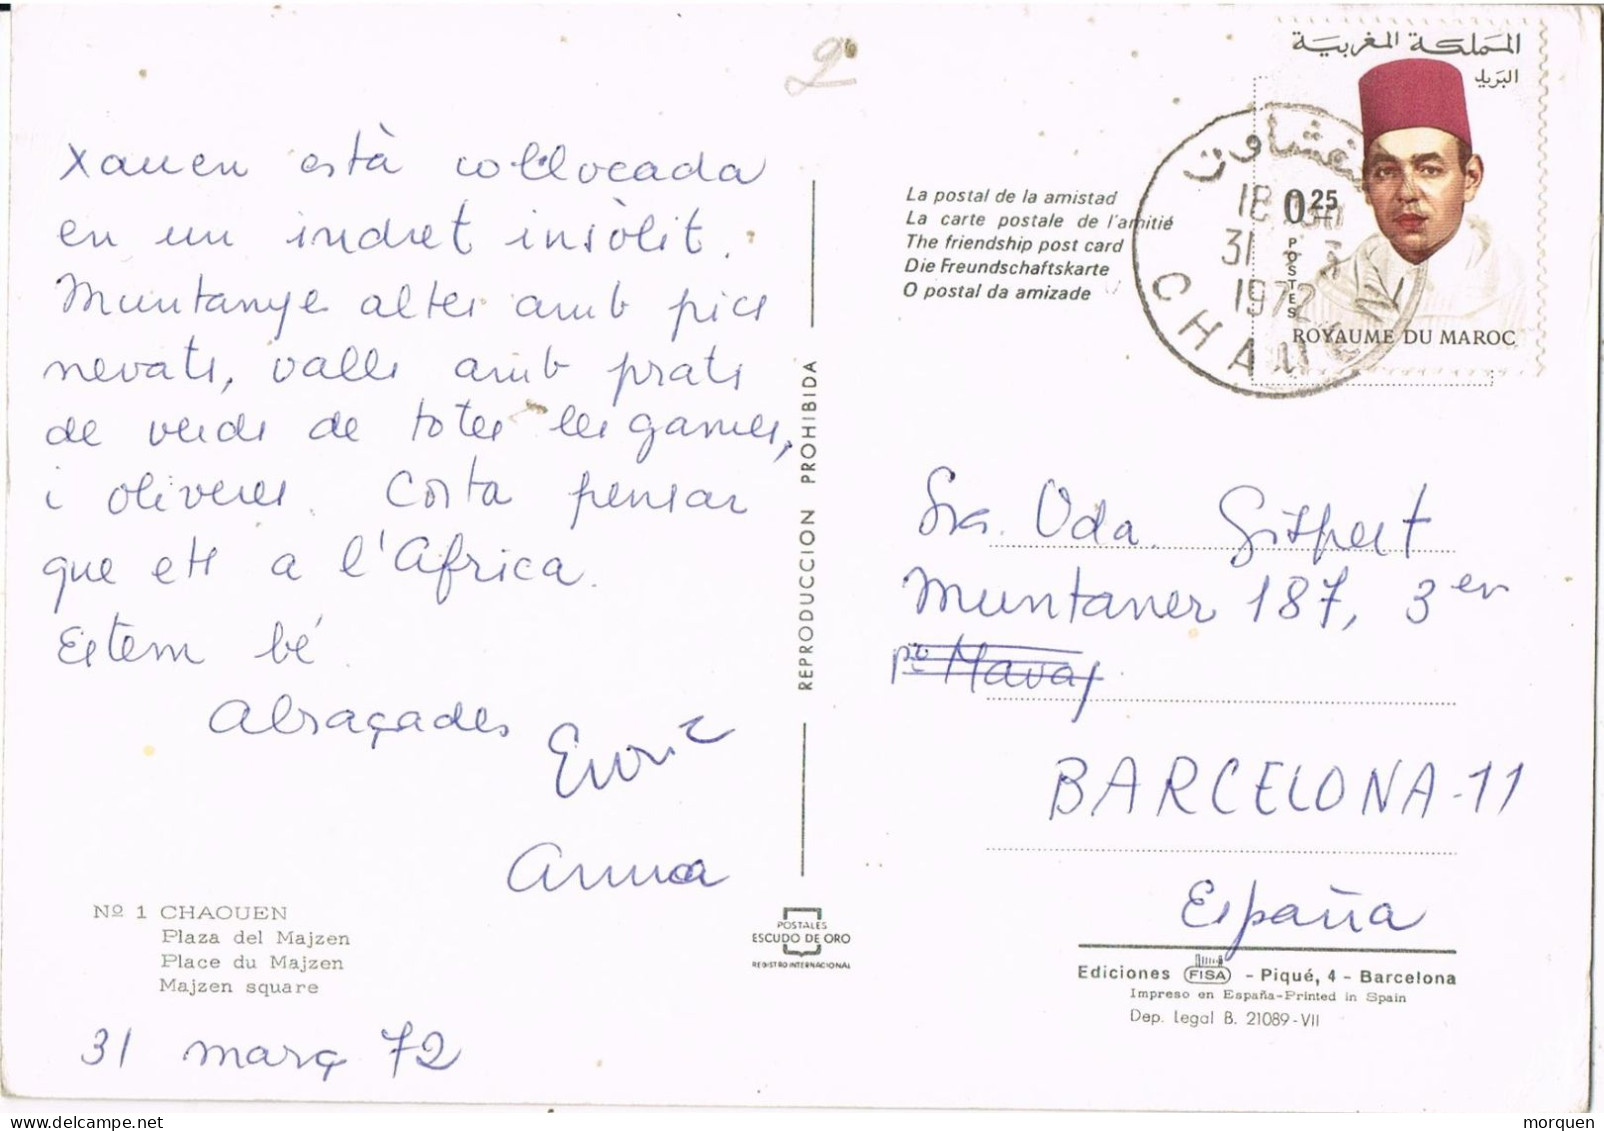 2
Xauen està col·locada
en un indret insòlit.
Muntanyes altes amb pics
nevats, valls amb prats
de verds de totes les games,
i oliveres. Costa pensar
que ets a l'Africa.
Estem bé.
Abraçades
Enric
Anna
Nº 1 CHAOUEN
Plaza del Majzen
Place du Majzen
Majzen square
31 març 72
REPRODUCCION PROHIBIDA
POSTALES
ESCUDO DE ORO
REGISTRO INTERNACIONAL
المملكة المغربية
البريد
0.25
POSTES
ROYAUME DU MAROC
شفشاون
31 - 3
1972
CHAUEN
La postal de la amistad
La carte postale de l'amitié
The friendship post card
Die Freundschaftskarte
O postal da amizade
Sra. Oda Gispert
Muntaner 187, 3er
BARCELONA-11
España
Ediciones FISA - Piqué, 4 - Barcelona
Impreso en España-Printed in Spain
Dep. Legal B. 21089-VII
morquen